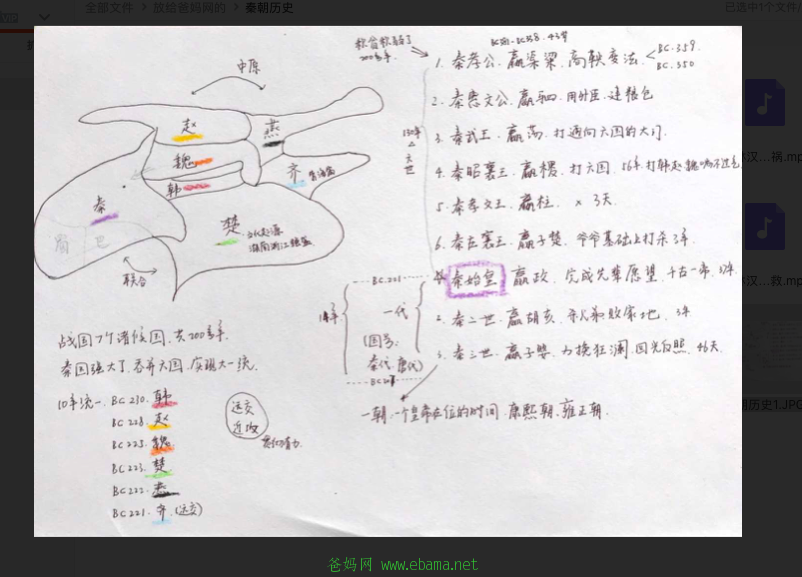 全部文件 > 放给爸妈网的 > 秦朝历史
已选中1个文件/
中原
赵
燕
魏
韩
齐
秦
楚
蜀 巴
联合
战国7个诸侯国,共200多年.
秦国强大了,吞并六国,实现大一统.
10年统一. BC 230. 韩
BC 228. 赵
BC 225. 魏
BC 223. 楚
BC 222. 燕
BC 221. 齐 (远交)
远交
近攻
200多年.
1. 秦孝公. 嬴渠梁. 商鞅变法.
BC.359.
BC.350
2. 秦惠文公. 嬴驷. 用外臣.
3. 秦武王. 嬴荡. 打通向六国的大门.
4. 秦昭襄王. 嬴稷. 打六国. 56年.打韩赵魏
5. 秦孝文王. 嬴柱. × 3天.
6. 秦庄襄王. 嬴子楚. 爷爷基础上打杀 3年.
秦始皇 嬴政. 完成先辈愿望. 千古一帝.
2. 秦二世. 嬴胡亥. 3年
3. 秦三世. 嬴子婴. 力挽狂澜.回光返照. 46天.
BC.221
一代
(国号:
秦代.唐代)
一朝:一个皇帝在位的时间. 康熙朝.雍正朝.
汉...祸.mp3
汉...救.mp3
期历史1.JPG
爸妈网 www.ebama.net